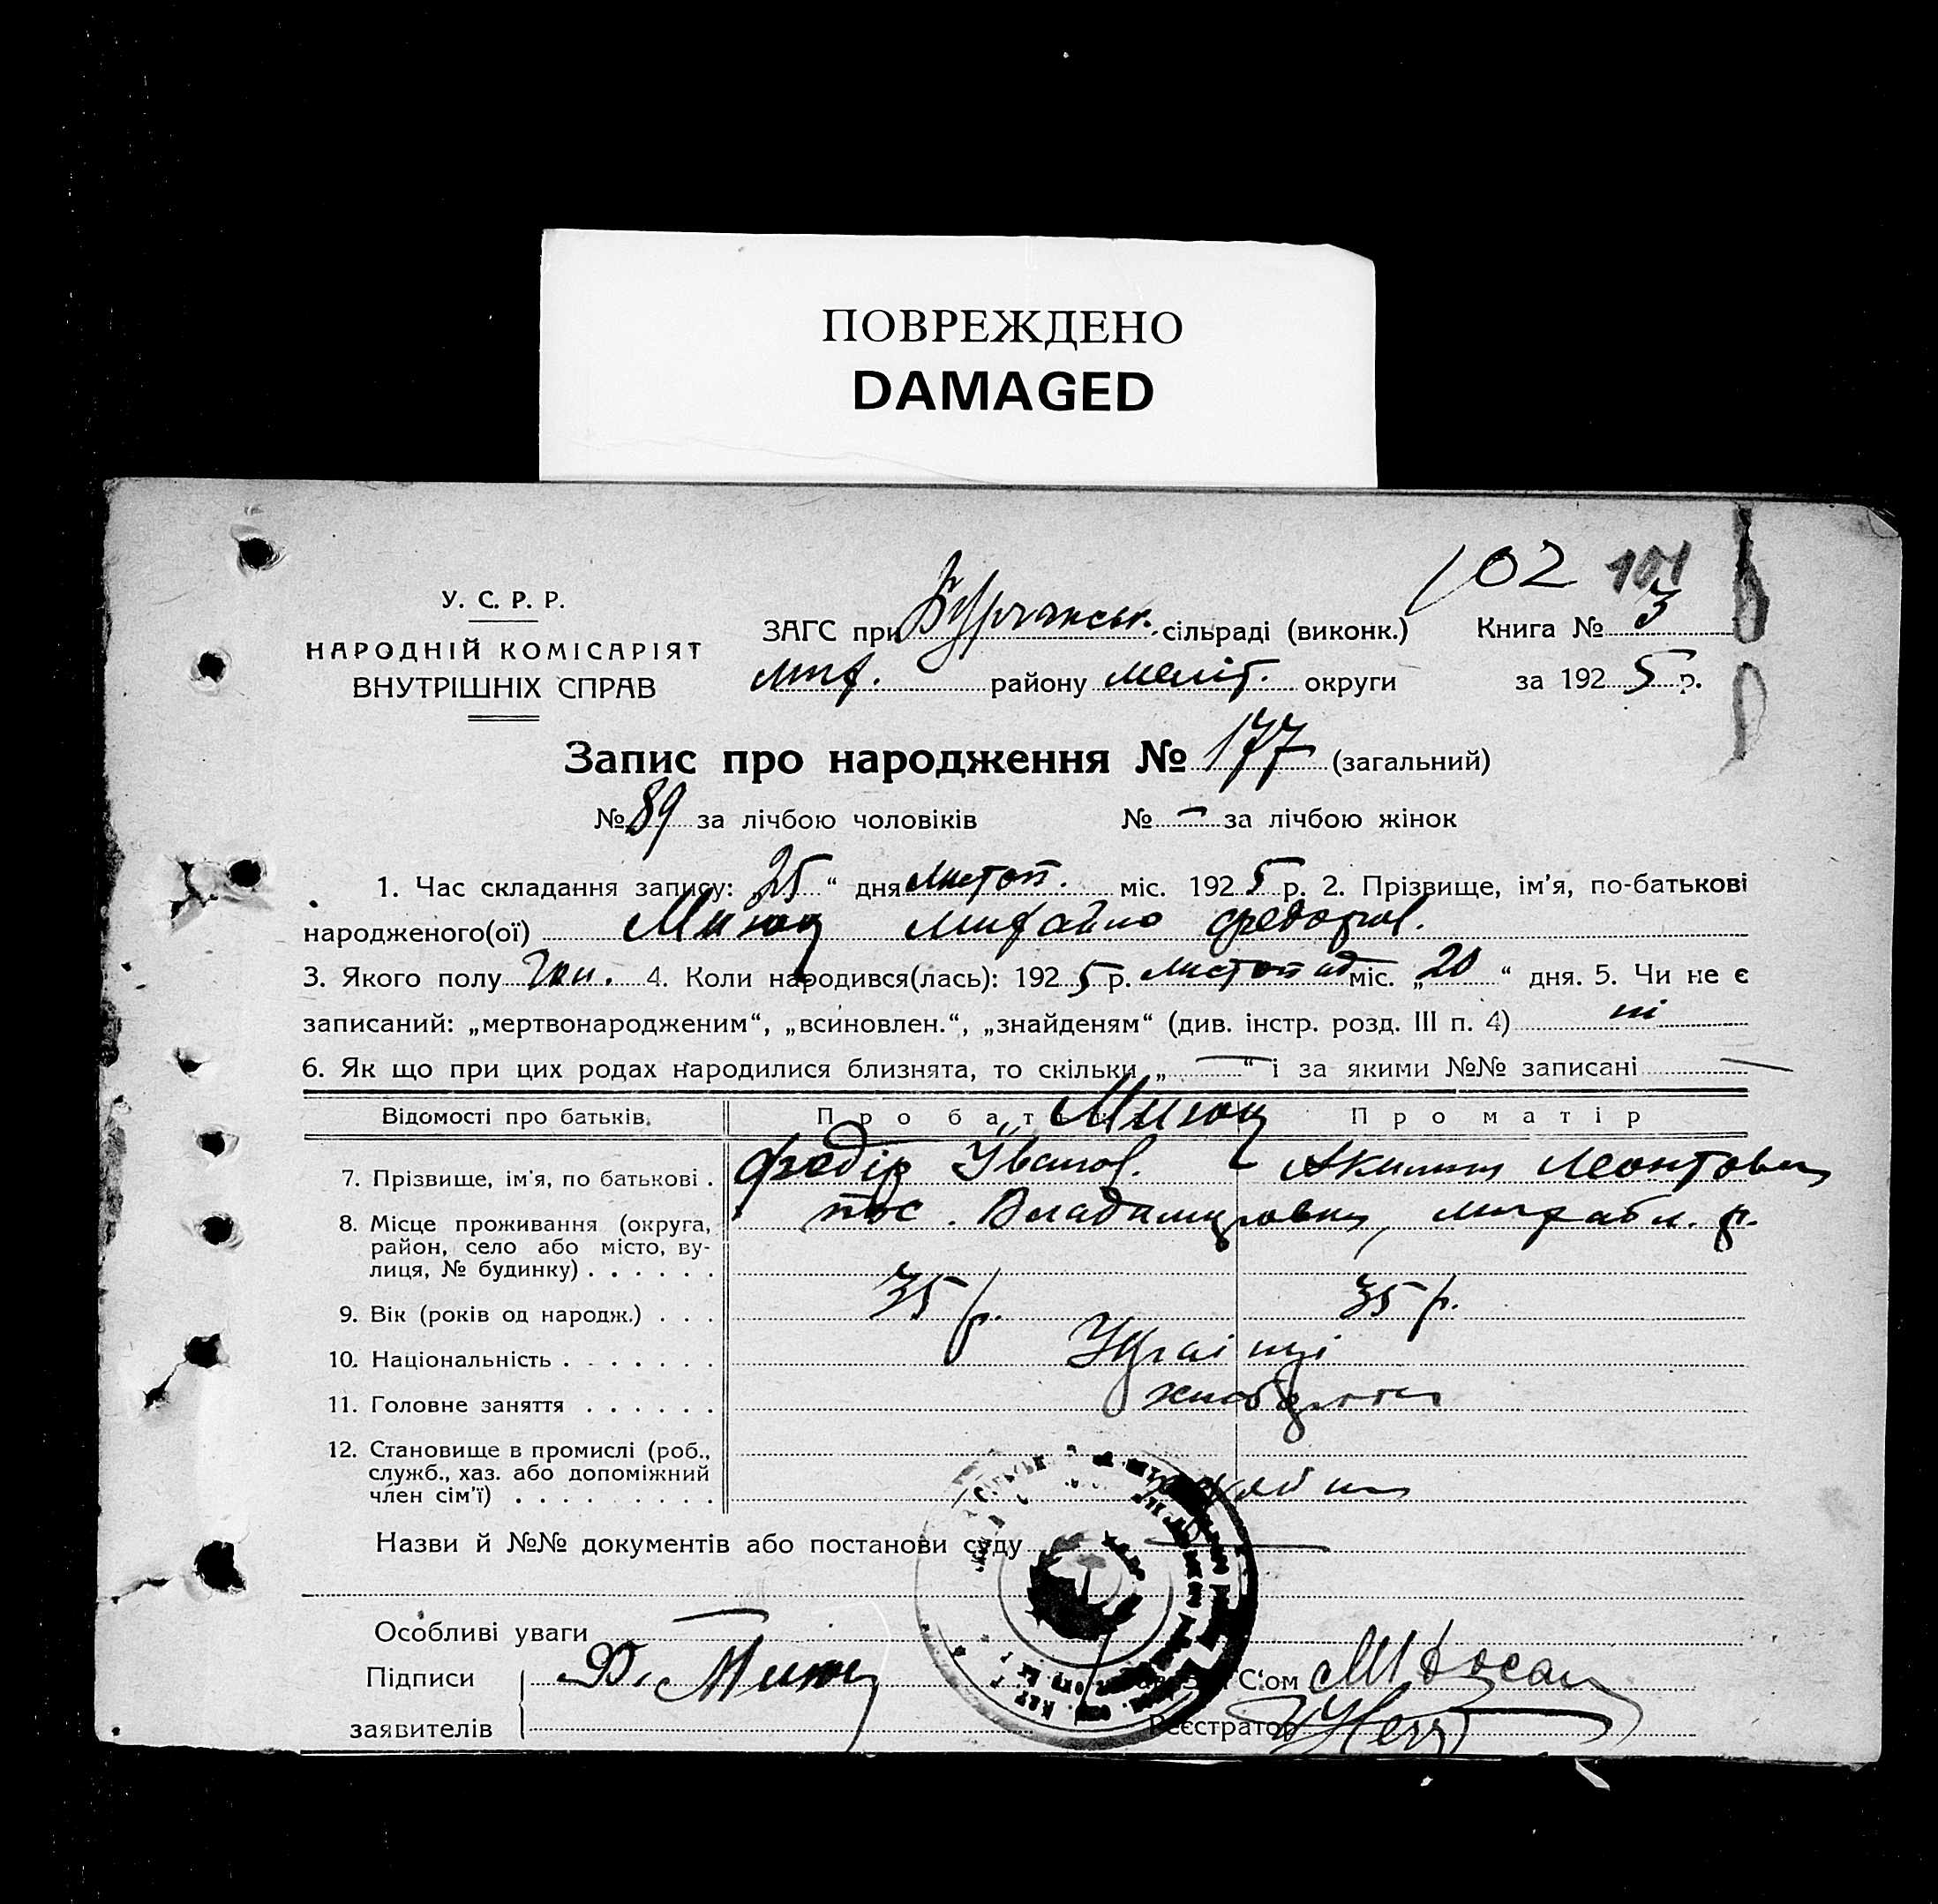 ПОВРЕЖДЕНО
DAMAGED
102 101
У. С. Р. Р.
НАРОДНІЙ КОМІСАРІЯТ
ВНУТРІШНІХ СПРАВ
ЗАГС при сільраді (виконк.) Книга № 3
району меліт. округи за 1925 р.
Запис про народження № 177 (загальний)
№ 89 за лічбою чоловіків № - за лічбою жінок
1. Час складання запису: „25“ дня листоп. міс. 1925 р. 2. Прізвище, ім'я, по-батькові
народженого(ої) Михайло Федоров.
3. Якого полу чол. 4. Коли народився(лась): 1925 р. листопад міс. „20“ дня. 5. Чи не є
записаний: „мертвонародженим“, „всиновлен.“, „знайденям“ (див. інстр. розд. III п. 4) ні
6. Як що при цих родах народилися близнята, то скільки „—“ і за якими №№ записані —
Відомості про батьків. Про батька Про матір
7. Прізвище, ім'я, по батькові . Федір Іванов. Акилина Леонтовна
8. Місце проживання (округа, пос. Владимировка,
район, село або місто, ву-
лиця, № будинку) . . . . . .
9. Вік (років од народж.) . . . 35 р. 35 р.
10. Національність . . . . . . . Українці
11. Головне заняття . . . . . .
12. Становище в промислі (роб.,
служб., хаз. або допоміжний
член сім'ї) . . . . . . . . .
Назви й №№ документів або постанови суду —
Особливі уваги
Підписи С'ом
заявителів Реєстратор